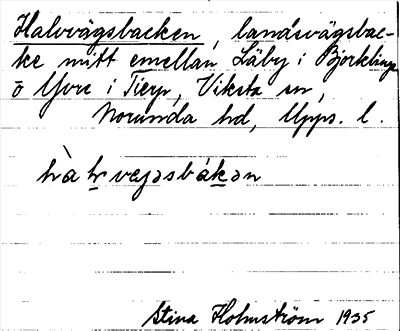 Halvvägsbacken, landsvägsbac-
ke mitt emellan Läby i Björklinge
o Yvre i Tierp, Viksta sn,
Norunda hd, Upps. l.
hàlvvejəsbákən
Stina Holmström 1935